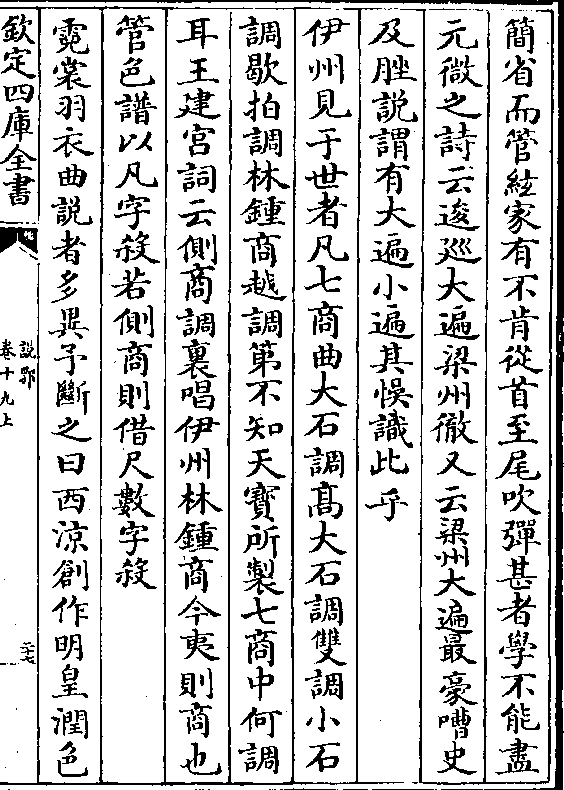 簡省而管絃家有不肯從首至尾吹彈甚者學不能盡
元微之詩云逡巡大遍梁州徹又云梁州大遍最豪嘈史
及脞説謂有大遍小遍其悞識此乎
伊州見于世者凡七商曲大石調髙大石調雙調小石
調歇拍調林鍾商越調第不知天寳所製七商中何調
耳王建宮詞云側商調裏唱伊州林鍾商今夷則商也
管色譜以凡字殺若側商則借尺數字殺
霓裳羽衣曲説者多異予斷之曰西涼創作明皇潤色
欽定四庫全書
説郛
卷十九上
二十七